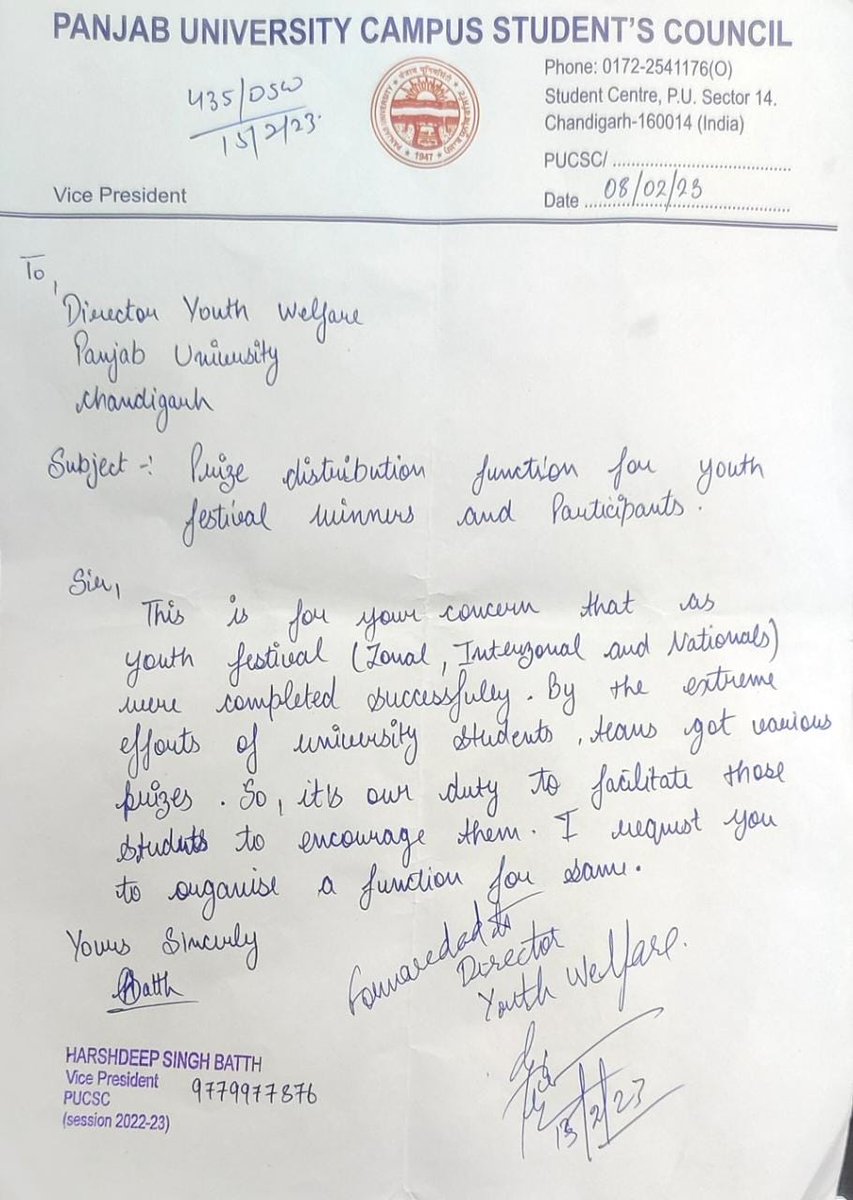 PANJAB UNIVERSITY CAMPUS STUDENT'S COUNCIL
435/DSW
15/2/23.
Phone: 0172-2541176(O)
Student Centre, P.U. Sector 14.
Chandigarh-160014 (India)
PUCSC/ ..............................
Date ...08/02/23..............................
Vice President
PANJAB UNIVERSITY
1947
To,
Director Youth Welfare
Panjab University
Chandigarh
Subject -: Prize distribution function for youth
festival winners and Participants.
Sir,
This is for your concern that as
youth festival (Zonal, Interzonal and Nationals)
were completed successfully. By the extreme
efforts of university students, teams got various
prizes. So, it's our duty to facilitate those
students to encourage them. I request you
to organise a function for same.
Yours Sincerly
Batth
Forwareded to
Director
Youth Welfare.
13/2/23
HARSHDEEP SINGH BATTH
Vice President 9779977876
PUCSC
(session 2022-23)